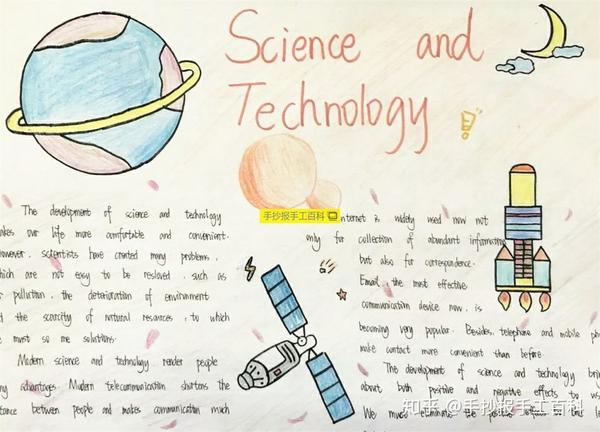 Science and
Technology
The development of science and technology
akes our life more comfortable and convenient.
owever, scientists have created many problems,
hich are not easy to be reslaved, such as
pollution, the deterioration of environment
the scarcity of natural resources, to which
must so me solutions.
Modern science and technology render people
advantages. Modern telecommunication shortens the
tance between people and makes communication much
手抄报手工百科
nternet is widely used now not
only for collection of abundant information
but also for correspondence.
Email, the most effective
communication device now, is
becoming very popular. Besides, telephone and mobile pho
make contact more convenient than before.
The development of science and technology brin
about both positive and negative effects to us
We must eliminate the
知乎 @手抄报手工百科